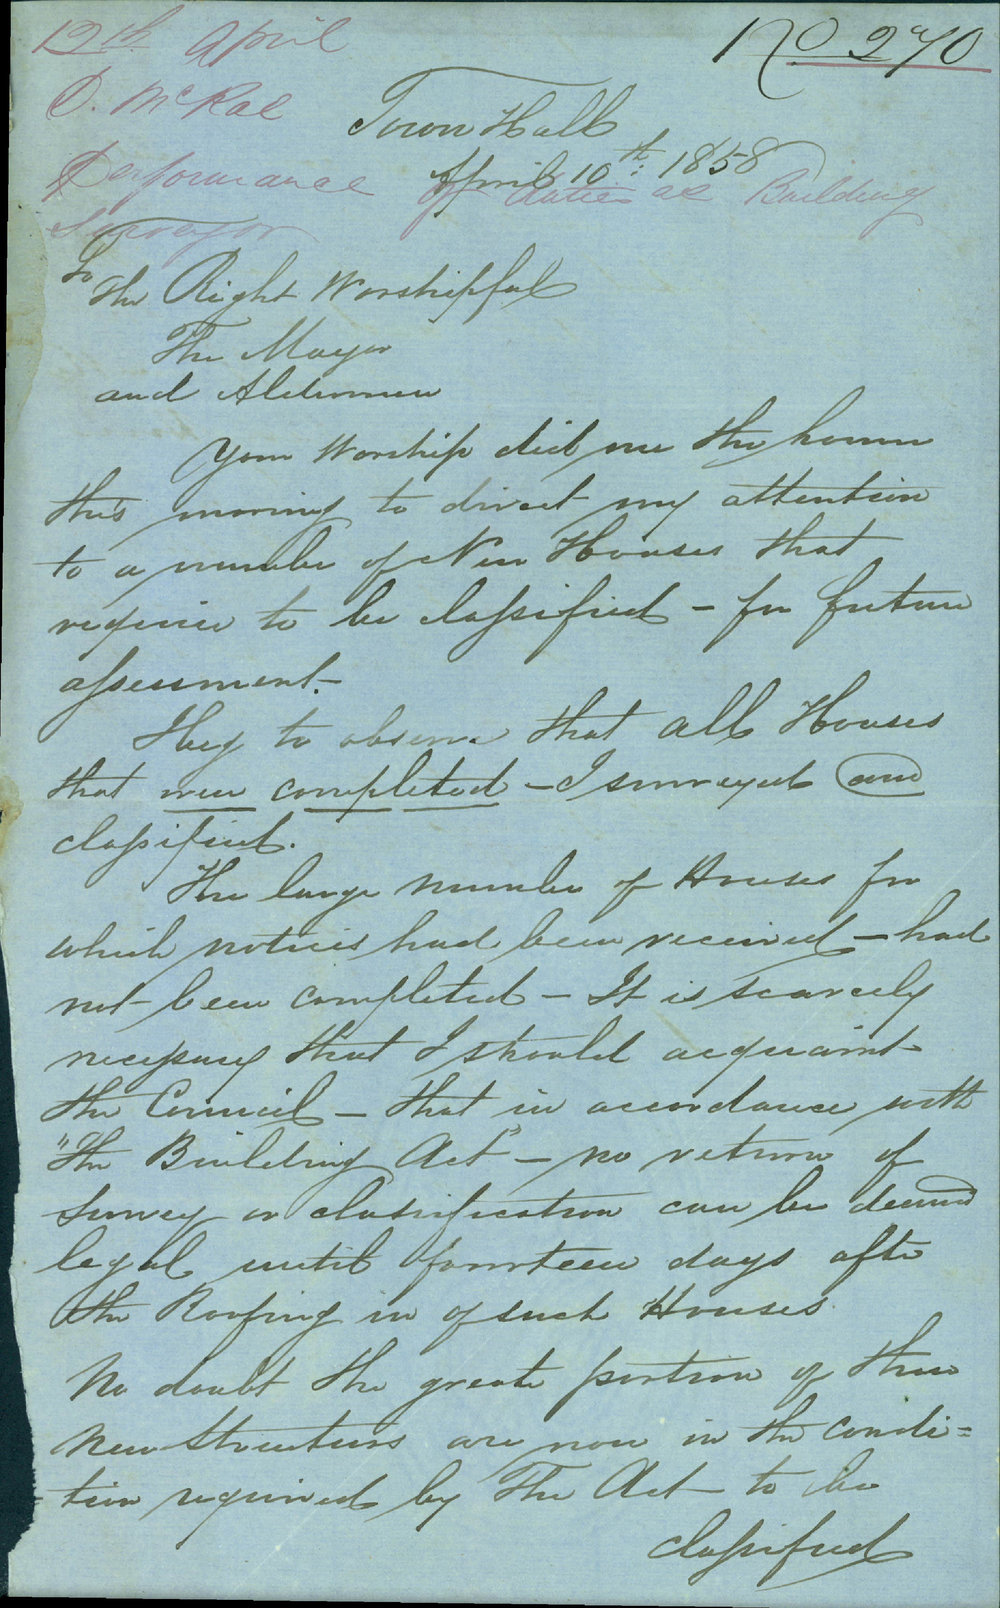 12th April
D. McRae
Performance of duties as Building
Surveyor
No 270
Town Hall
April 10th: 1858
To
The Right Worshipful
The Mayor
and Aldermen
Your Worship did me the honor
this morning to direct my attention
to a number of New Houses that
require to be classified – for future
assessment.–
I beg to observe that all Houses
that were completed – I surveyed and
classified.
The large number of Houses for
which notices had been received – had
not been completed – It is scarcely
necessary that I should acquaint
the Council – that in accordance with
"The Building Act" – no return of
survey or classification can be deemed
legal until fourteen days after
the Roofing in of such Houses
No doubt the greater portion of these
New Structures are now in the condi=
tion required by The Act – to be
classified